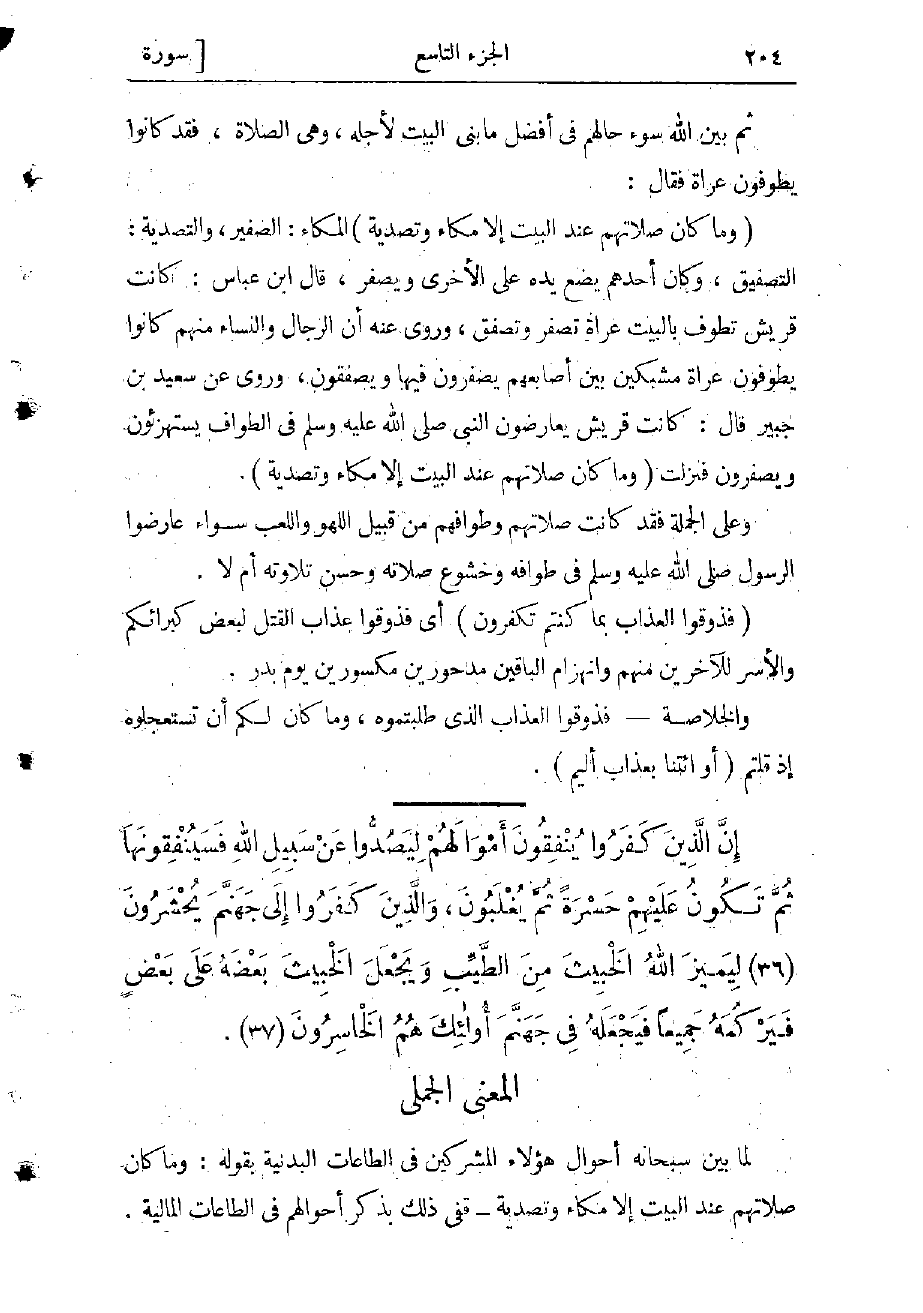 ٢٠٤ الجزء التاسع [ سورة
ثم بين الله سوء حالهم فى أفضل مابنى البيت لأجله ، وهى الصلاة ، فقد كانوا
يطوفون عراة فقال :
( وما كان صلاتهم عند البيت إلا مكاء وتصدية ) المكاء : الصفير ، والتصدية :
التصفيق ، وكان أحدهم يضع يده على الأخرى ويصفر ، قال ابن عباس : كانت
قريش تطوف بالبيت عراة تصفر وتصفق ، وروى عنه أن الرجال والنساء منهم كانوا
يطوفون عراة مشبكين بين أصابعهم يصفرون فيها ويصفقون ، وروى عن سعيد بن
جبير قال : كانت قريش يعارضون النبى صلى الله عليه وسلم فى الطواف يستهزئون
ويصفرون فنزلت ( وما كان صلاتهم عند البيت إلا مكاء وتصدية ) .
وعلى الجملة فقد كانت صلاتهم وطوافهم من قبيل اللهو واللعب سواء عارضوا
الرسول صلى الله عليه وسلم فى طوافه وخشوع صلاته وحسن تلاوته أم لا .
( فذوقوا العذاب بما كنتم تكفرون ) أى فذوقوا عذاب القتل لبعض كبرائكم
والأسر للآخرين منهم وانهزام الباقين مدحورين مكسورين يوم بدر .
والخلاصة — فذوقوا العذاب الذى طلبتموه ، وما كان لكم أن تستعجلوه
إذ قلتم ( أو ائتنا بعذاب أليم ) .
إِنَّ الَّذِينَ كَفَرُوا يُنْفِقُونَ أَمْوَالَهُمْ لِيَصُدُّوا عَنْ سَبِيلِ اللهِ فَسَيُنْفِقُونَهَا
ثُمَّ تَكُونُ عَلَيْهِمْ حَسْرَةً ثُمَّ يُغْلَبُونَ ، وَالَّذِينَ كَفَرُوا إِلَى جَهَنَّمَ يُحْشَرُونَ
(٣٦) لِيَمِيزَ اللهُ الْخَبِيثَ مِنَ الطَّيِّبِ وَيَجْعَلَ الْخَبِيثَ بَعْضَهُ عَلَى بَعْضٍ
فَيَرْكُمَهُ جَمِيعاً فَيَجْعَلَهُ فِى جَهَنَّمَ أُولٰئِكَ هُمُ الْخَاسِرُونَ (٣٧) .
المعنى الجملى
لما بين سبحانه أحوال هؤلاء المشركين فى الطاعات البدنية بقوله : وما كان
صلاتهم عند البيت إلا مكاء وتصدية – قفى ذلك بذكر أحوالهم فى الطاعات المالية .